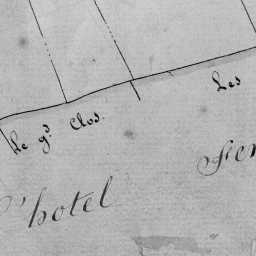 Le g.d Clos.
Les
l'hotel